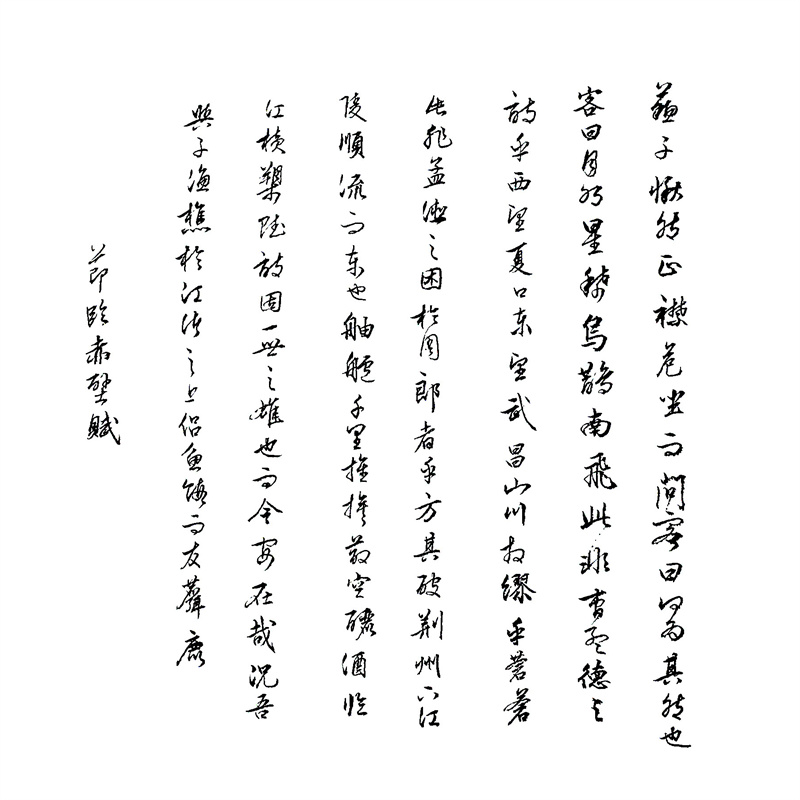 蘇子愀然正襟危坐而問客曰何為其然也
客曰月明星稀烏鵲南飛此非曹孟德之
詩乎西望夏口東望武昌山川相繆乎蒼蒼
此非孟德之困於周郎者乎方其破荊州下江
陵順流而東也舳艫千里旌旗蔽空釃酒臨
江橫槊賦詩固一世之雄也而今安在哉況吾
與子漁樵於江渚之上侶魚蝦而友麋鹿
節臨赤壁賦